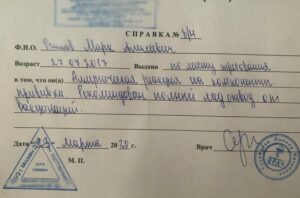 СПРАВКА № б/н
Ф.И.О. Осипов Марк Алексеевич
Возраст 17.07.2017 Выдана по месту требования
в том, что он(а) Аллергическая реакция на компоненты
прививки. Рекомендован полный мед отвод от
вакцинаций.
Дата марта 2020 г. Врач
М. П.
для
ВРАЧ